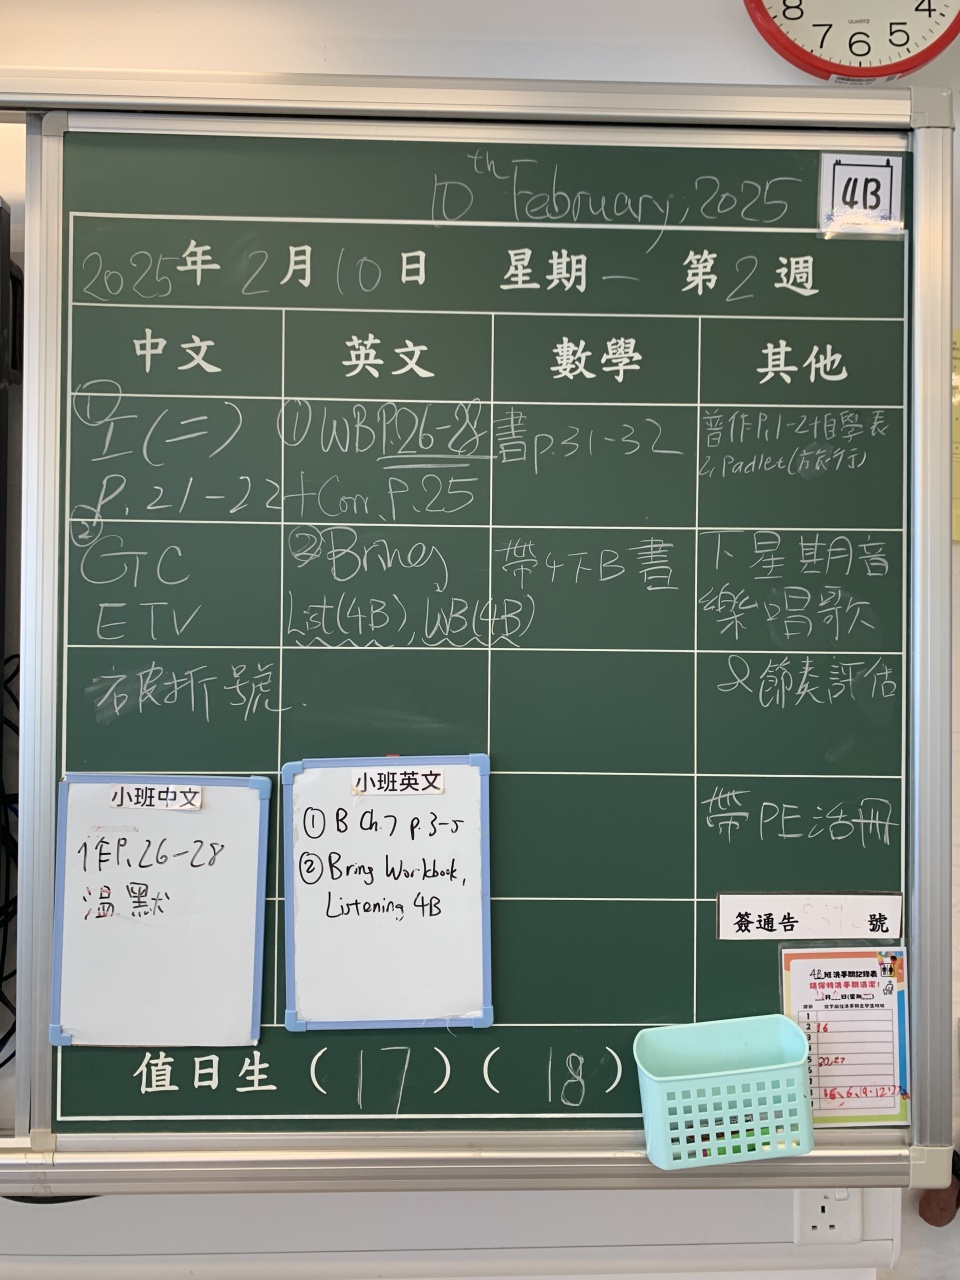 8 7 6 5 4
QUARTZ
10th February, 2025
4B
2025年2月10日 星期一 第2週
中文 英文 數學 其他
①
工(二)
P.21-22
① WB P.26-28
+Corr. P.25
書p.31-32
普作P.1-2+自學表
2, Padlet(旅行)
②
GTC
ETV
②Bring
List(4B), WB(4B)
帶4下B書
下星期音
樂唱歌
破折號.
&節奏評估
帶PE活冊
小班中文
作P.26-28
溫默
小班英文
① B Ch.7 p.3-5
② Bring Workbook,
Listening 4B
簽通告 號
4B班洗手間記錄表
請保持洗手間清潔!
1
2 16
20,27
值日生 (17) (18)